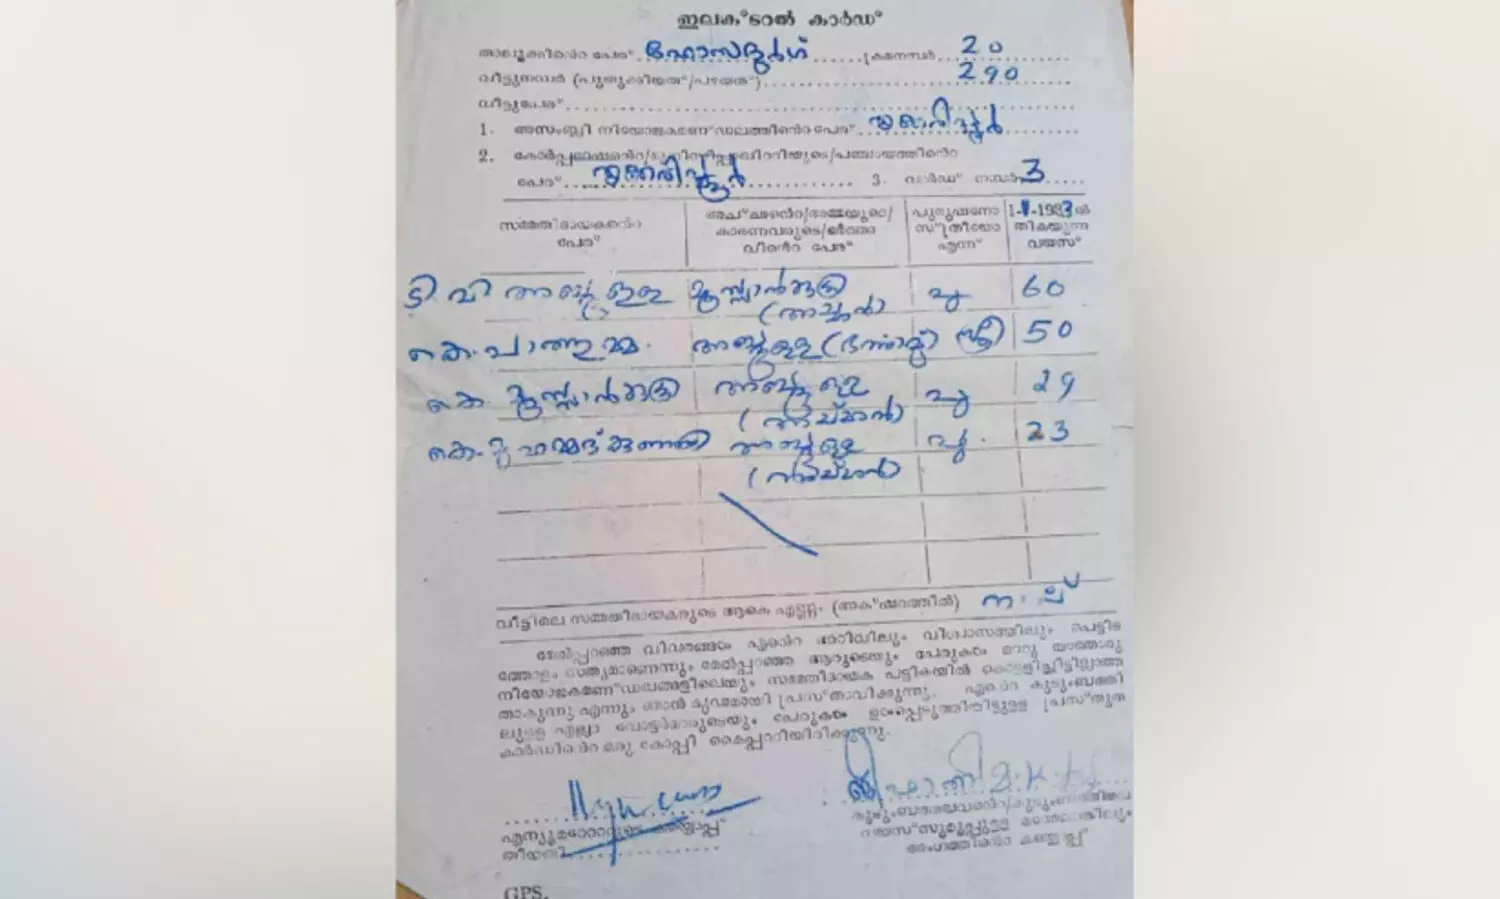 ഇലക്ടറൽ കാർഡ്
താലൂക്കിൻെറ പേര് ഹോസ്ദുർഗ് ക്രമനമ്പർ 20
വീട്ടുനമ്പർ (പുതുക്കിയത്/പഴയത്) 290
വീട്ടുപേര്
1. അസംബ്ലി നിയോജകമണ്ഡലത്തിൻെറ പേര് തൃക്കരിപ്പൂർ
2. കോർപ്പറേഷൻെറ/മുനിസിപ്പാലിററിയുടെ/പഞ്ചായത്തിൻെറ
പേര് തൃക്കരിപ്പൂർ 3. വാർഡ് നമ്പർ 3
സമ്മതിദായകൻെറ
പേര്
അച്ഛൻെറ/അമ്മയുടെ/
കാരണവരുടെ/ഭർത്താ
വിൻെറ പേര്
പുരുഷനോ
സ്ത്രീയോ
എന്ന്
1-1-1983ൽ
തികയുന്ന
വയസ്
ടി. വി അബ്ദുള്ള മുസ്ലാൻകുട്ടി പു 60
(അച്ഛൻ)
കെ. പാത്തുമ്മ. അബ്ദുള്ള (ഭർത്താവ്) സ്ത്രീ 50
കെ മുസ്ലാൻകുട്ടി അബ്ദുള്ള പു 29
(അച്ഛൻ)
കെ. മുഹമ്മദ്കുഞ്ഞി അബ്ദുള്ള പു. 23
വീട്ടിലെ സമ്മതിദായകരുടെ ആകെ എണ്ണം (അക്ഷരത്തിൽ) നാല്
മേൽപ്പറഞ്ഞ വിവരങ്ങൾ എൻെറ അറിവിലും വിശ്വാസത്തിലും പെട്ടിട
ത്തോളം സത്യമാണെന്നും മേൽപ്പറഞ്ഞ ആരുടെയും പേരുകൾ മററു യാതൊരു
നിയോജകമണ്ഡലങ്ങളിലെയും സമ്മതിദായക പട്ടികയിൽ കൊള്ളിച്ചിട്ടില്ലാത്ത
താകുന്നു എന്നും ഞാൻ മുഖദാവിൽ പ്രസ്താവിക്കുന്നു. എൻെറ കുടുംബത്തി
ലുള്ള എല്ലാ വോട്ടർമാരുടെയും പേരുകൾ ഉൾപ്പെടുത്തിയിട്ടുള്ള പ്രസ്തുത
കാർഡിൻെറ ഒരു കോപ്പി കൈപ്പററിയിരിക്കുന്നു.
എന്യൂമറേറററുടെ ഒപ്പ്
തീയതി
കുടുംബത്തലവൻെറ/കുടുംബത്തിലെ
വയസ്സ് അംഗത്തിൻെറ ഒപ്പ്
GPS.